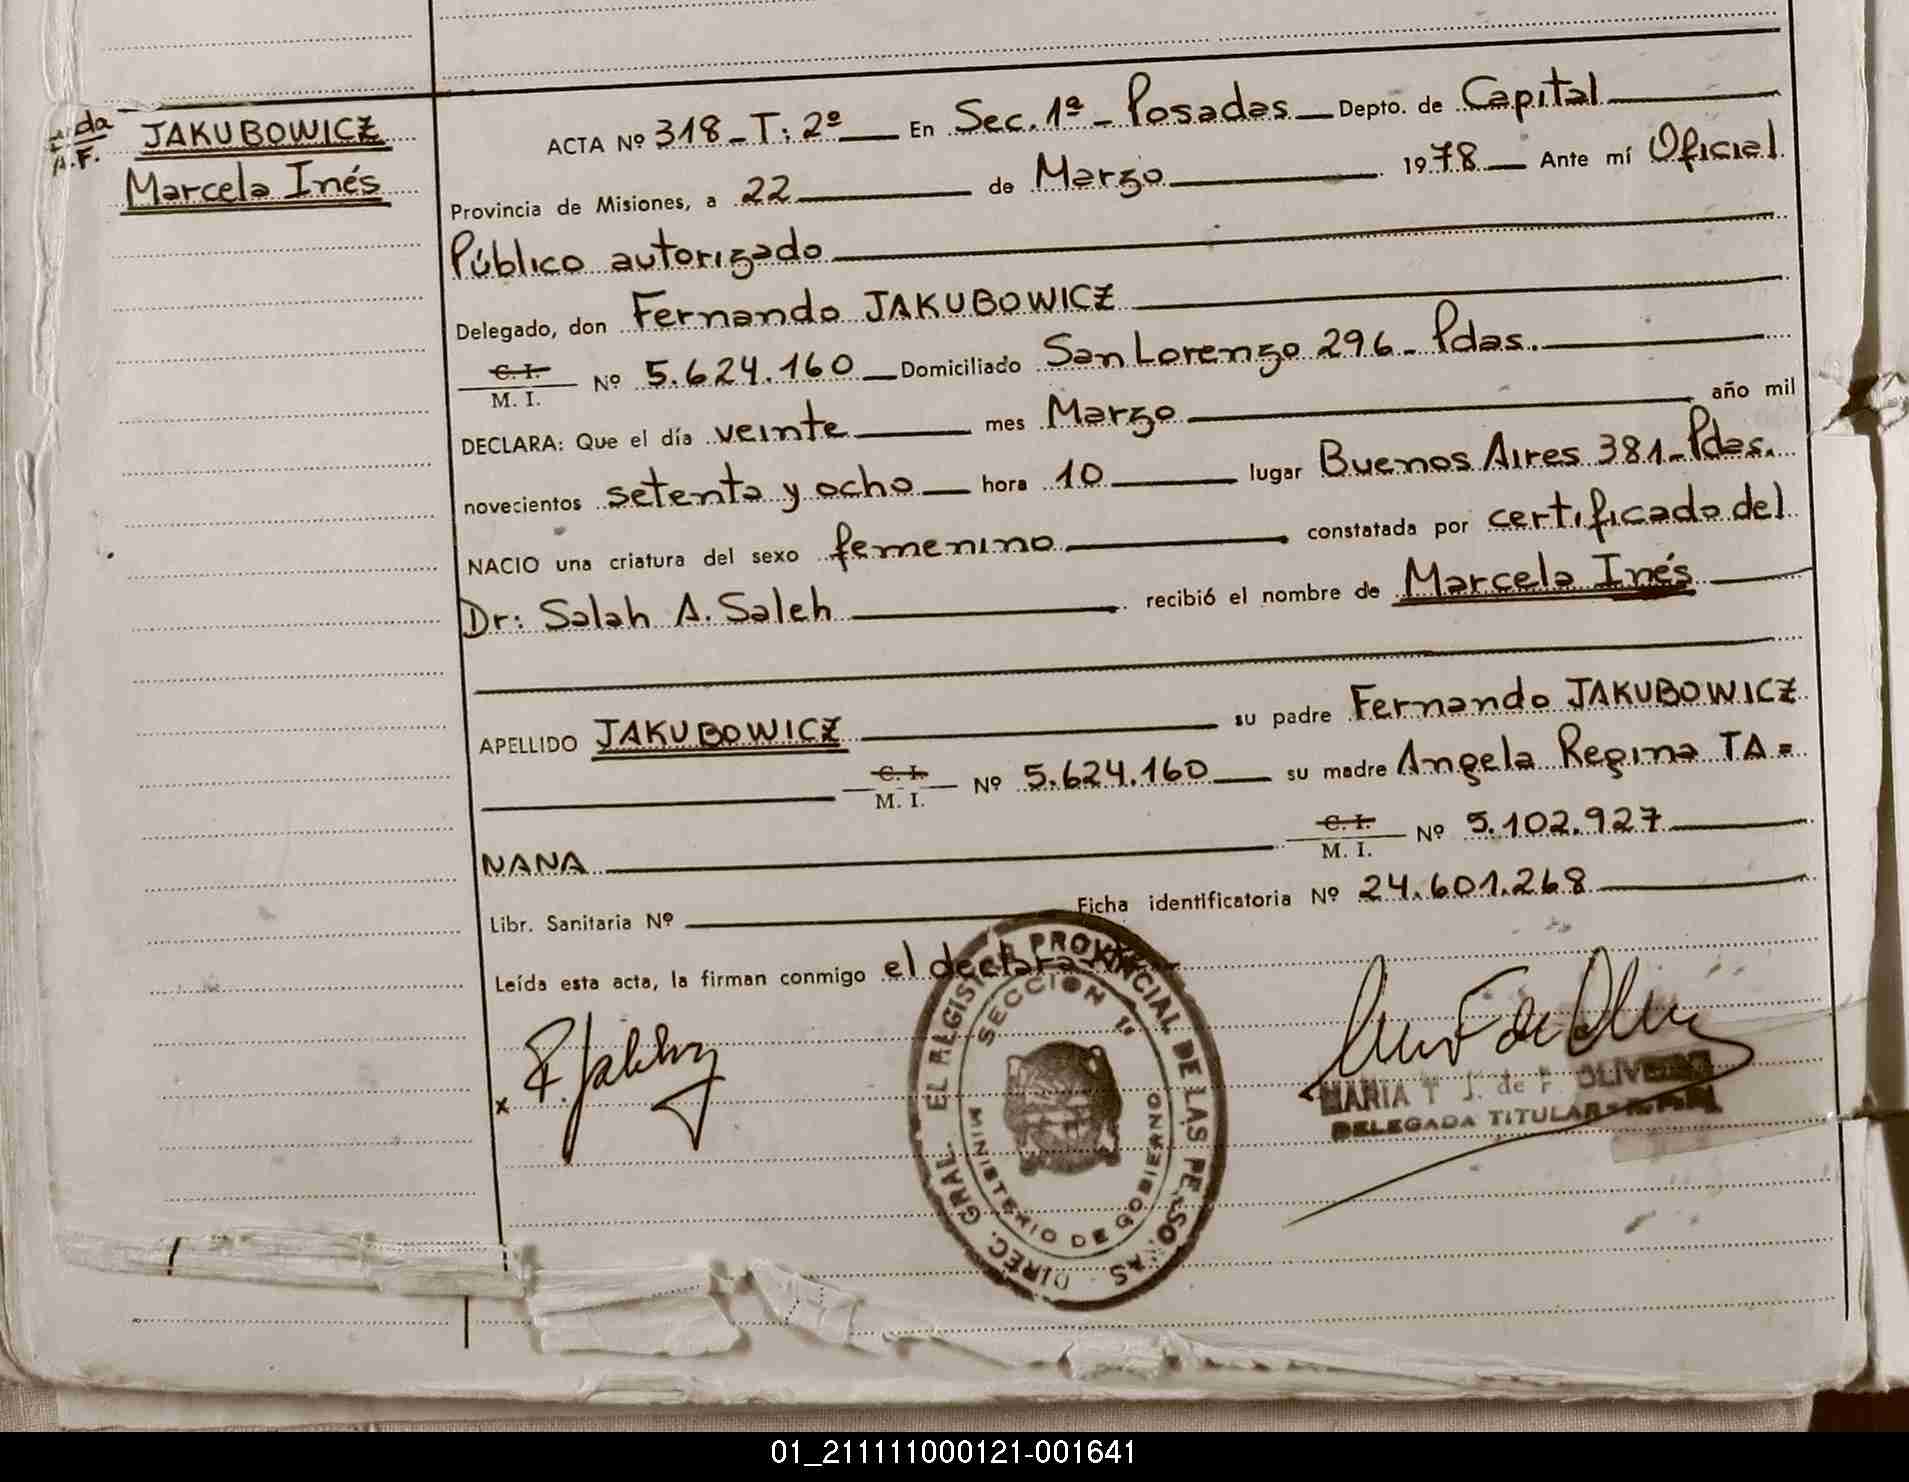 da
A.F.
JAKUBOWICZ
Marcela Inés
ACTA Nº 318 - T: 2º En Sec. 1ª - Posadas Depto. de Capital
Provincia de Misiones, a 22 de Marzo 1978 Ante mí Oficial
Público autorizado
Delegado, don Fernando JAKUBOWICZ
C. I.
M. I. Nº 5.624.160 Domiciliado San Lorenzo 296 - Pdas.
DECLARA: Que el día veinte mes Marzo año mil
novecientos setenta y ocho hora 10 lugar Buenos Aires 381 - Pdas.
NACIO una criatura del sexo femenino constatada por certificado del
Dr: Salah A. Saleh recibió el nombre de Marcela Inés
APELLIDO JAKUBOWICZ su padre Fernando JAKUBOWICZ
C. I.
M. I. Nº 5.624.160 su madre Angela Regina TA=
NANA C. I.
M. I. Nº 5.102.927
Libr. Sanitaria Nº Ficha identificatoria Nº 24.601.268
Leída esta acta, la firman conmigo el declarante
x
DIREC. GRAL. EL REGISTRO PROVINCIAL DE LAS PERSONAS
SECCION 1ª
MINISTERIO DE GOBIERNO
MARIA T J. de F. OLIVEIRA
DELEGADA TITULAR
01_211111000121-001641